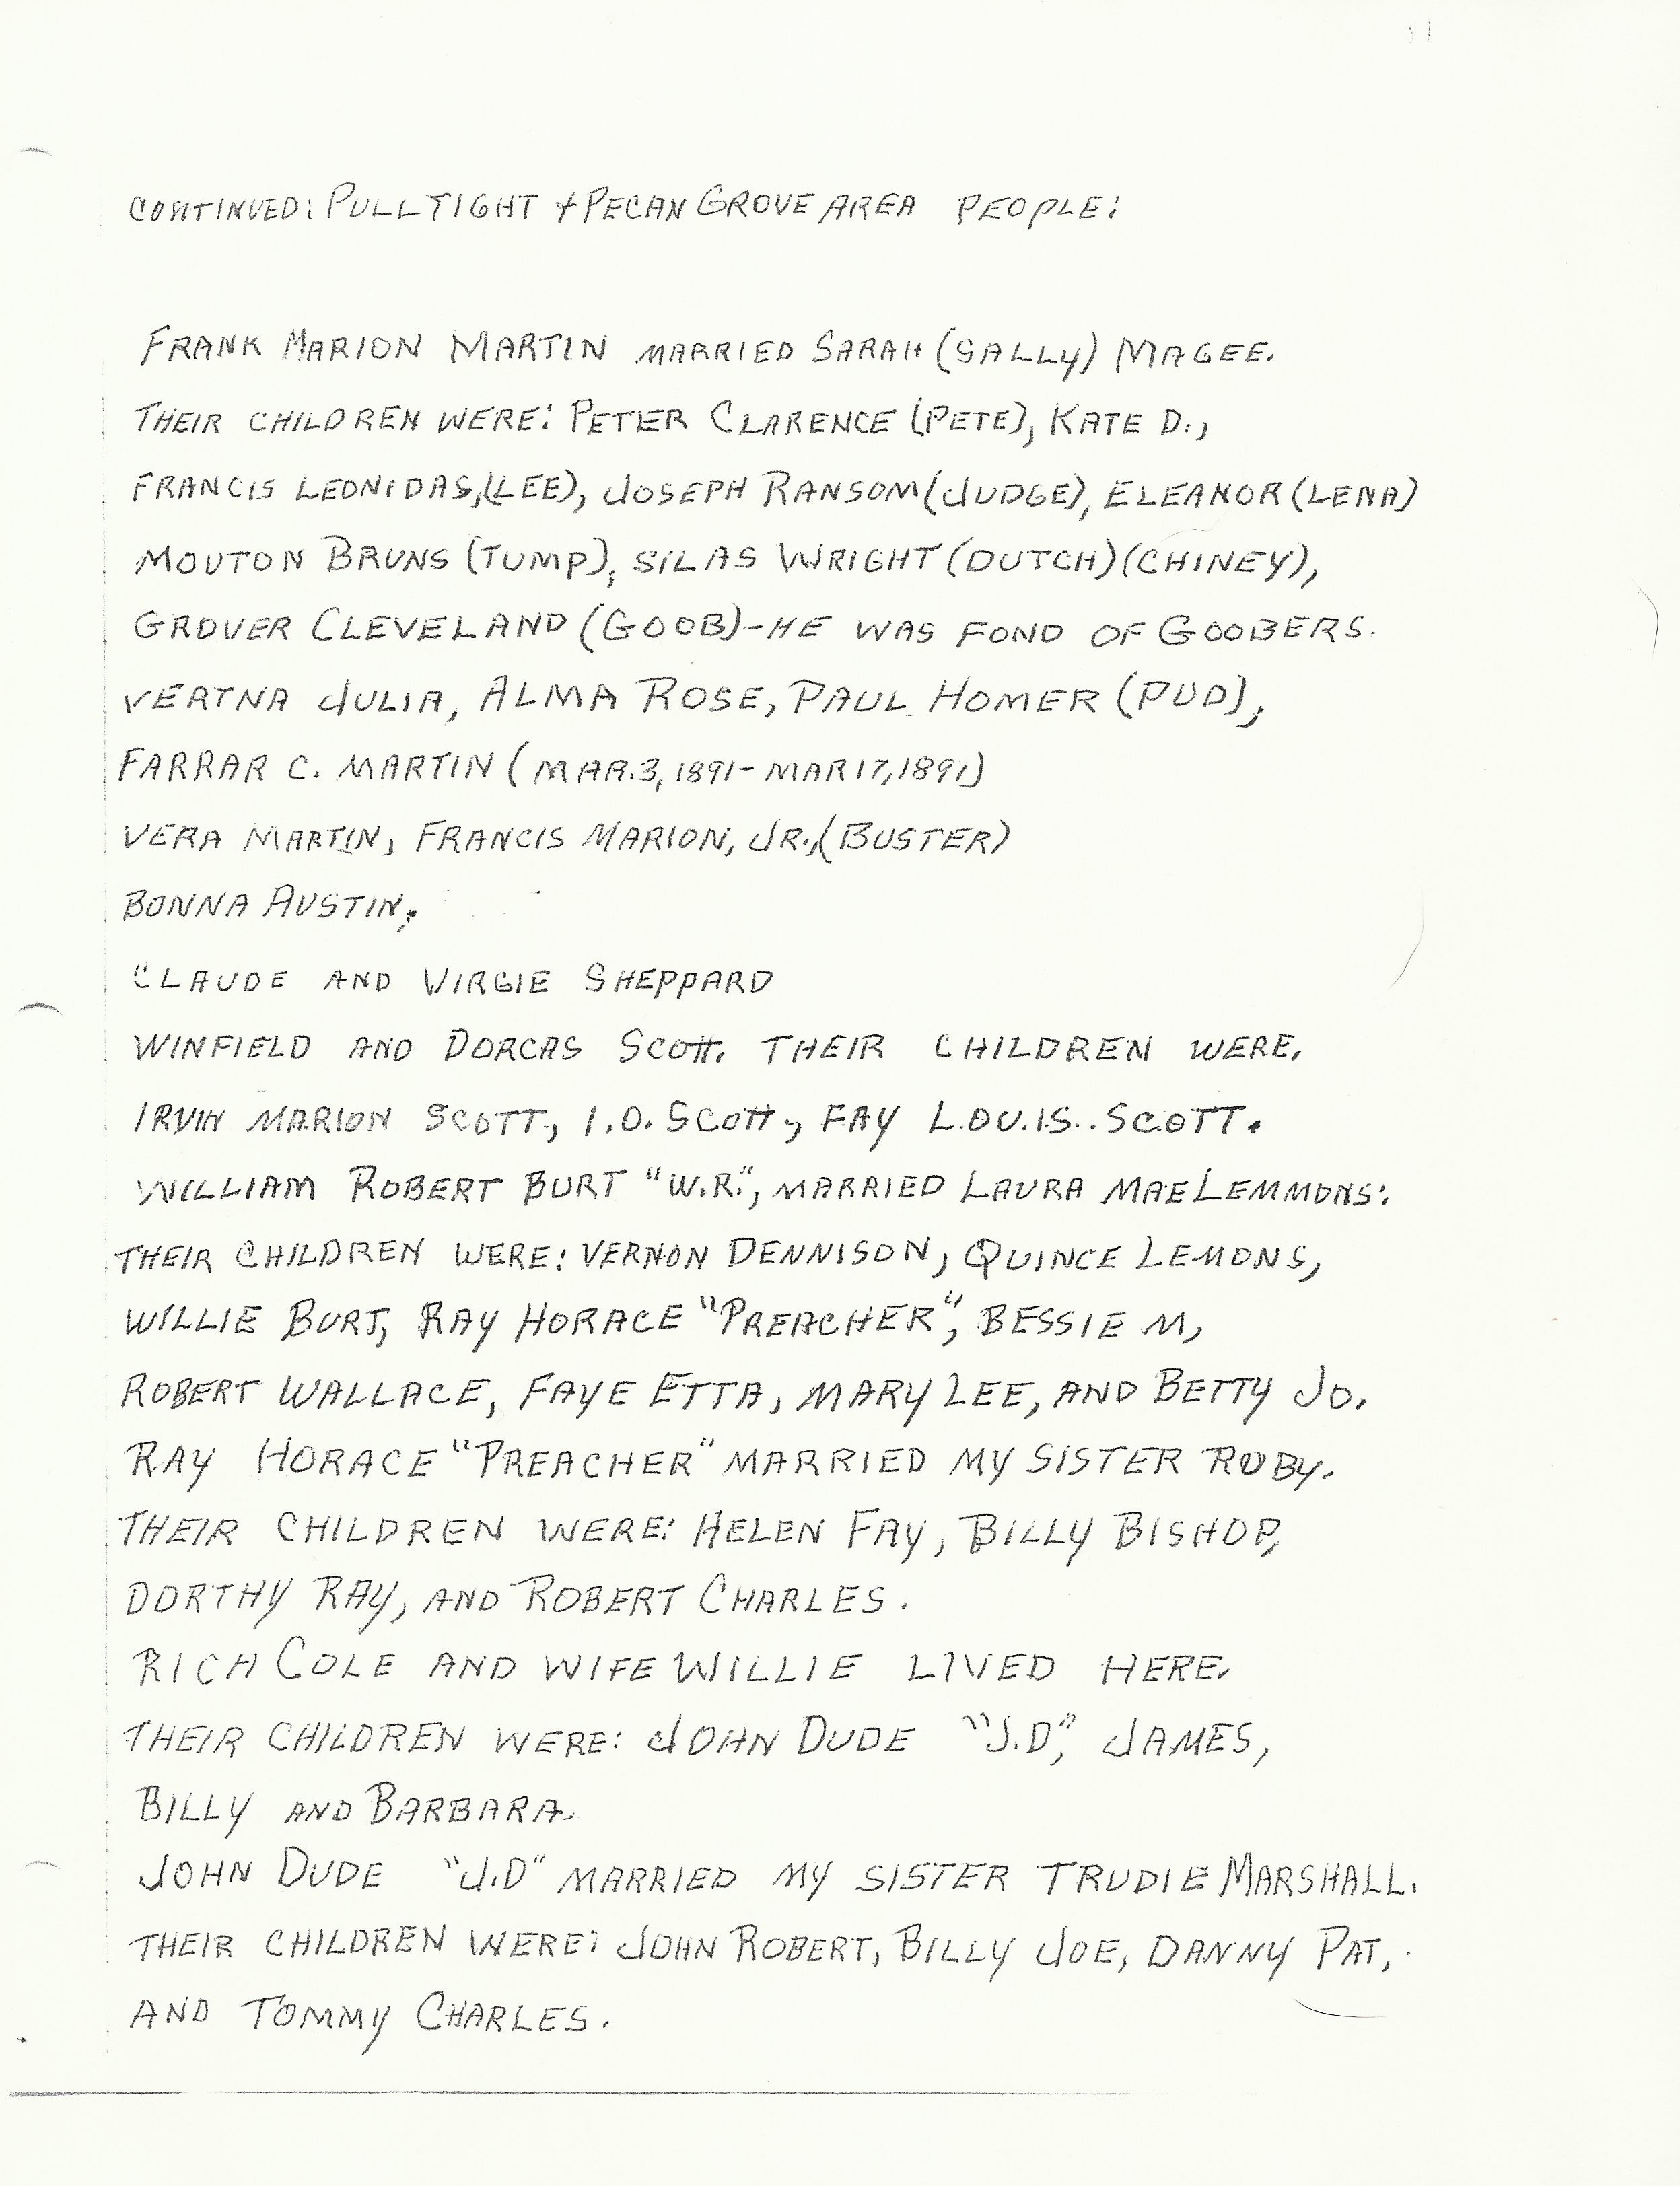 CONTINUED: PULLTIGHT & PECAN GROVE AREA PEOPLE:
FRANK MARION MARTIN MARRIED SARAH (SALLY) MAGEE.
THEIR CHILDREN WERE: PETER CLARENCE (PETE), KATE D.,
FRANCIS LEONIDAS,(LEE), JOSEPH RANSOM(JUDGE), ELEANOR (LENA)
MOUTON BRUNS (TUMP), SILAS WRIGHT (DUTCH)(CHINEY),
GROVER CLEVELAND (GOOB)-HE WAS FOND OF GOOBERS.
VERTNA JULIA, ALMA ROSE, PAUL HOMER (PUD),
FARRAR C. MARTIN (MAR.3, 1891- MAR 17, 1891)
VERA MARTIN, FRANCIS MARION, JR.,(BUSTER)
BONNA AUSTIN;
CLAUDE AND VIRGIE SHEPPARD
WINFIELD AND DORCAS SCOTT. THEIR CHILDREN WERE.
IRVIN MARION SCOTT, I.O. SCOTT, FAY LOU.IS. SCOTT.
WILLIAM ROBERT BURT "W.R.", MARRIED LAURA MAE LEMMONS.
THEIR CHILDREN WERE: VERNON DENNISON, QUINCE LEMONS,
WILLIE BURT, RAY HORACE "PREACHER", BESSIE M,
ROBERT WALLACE, FAYE ETTA, MARY LEE, AND BETTY JO.
RAY HORACE "PREACHER" MARRIED MY SISTER RUBY.
THEIR CHILDREN WERE: HELEN FAY, BILLY BISHOP,
DORTHY RAY, AND ROBERT CHARLES.
RICH COLE AND WIFE WILLIE LIVED HERE.
THEIR CHILDREN WERE: JOHN DUDE "J.D", JAMES,
BILLY AND BARBARA.
JOHN DUDE "J.D" MARRIED MY SISTER TRUDIE MARSHALL.
THEIR CHILDREN WERE: JOHN ROBERT, BILLY JOE, DANNY PAT,
AND TOMMY CHARLES.